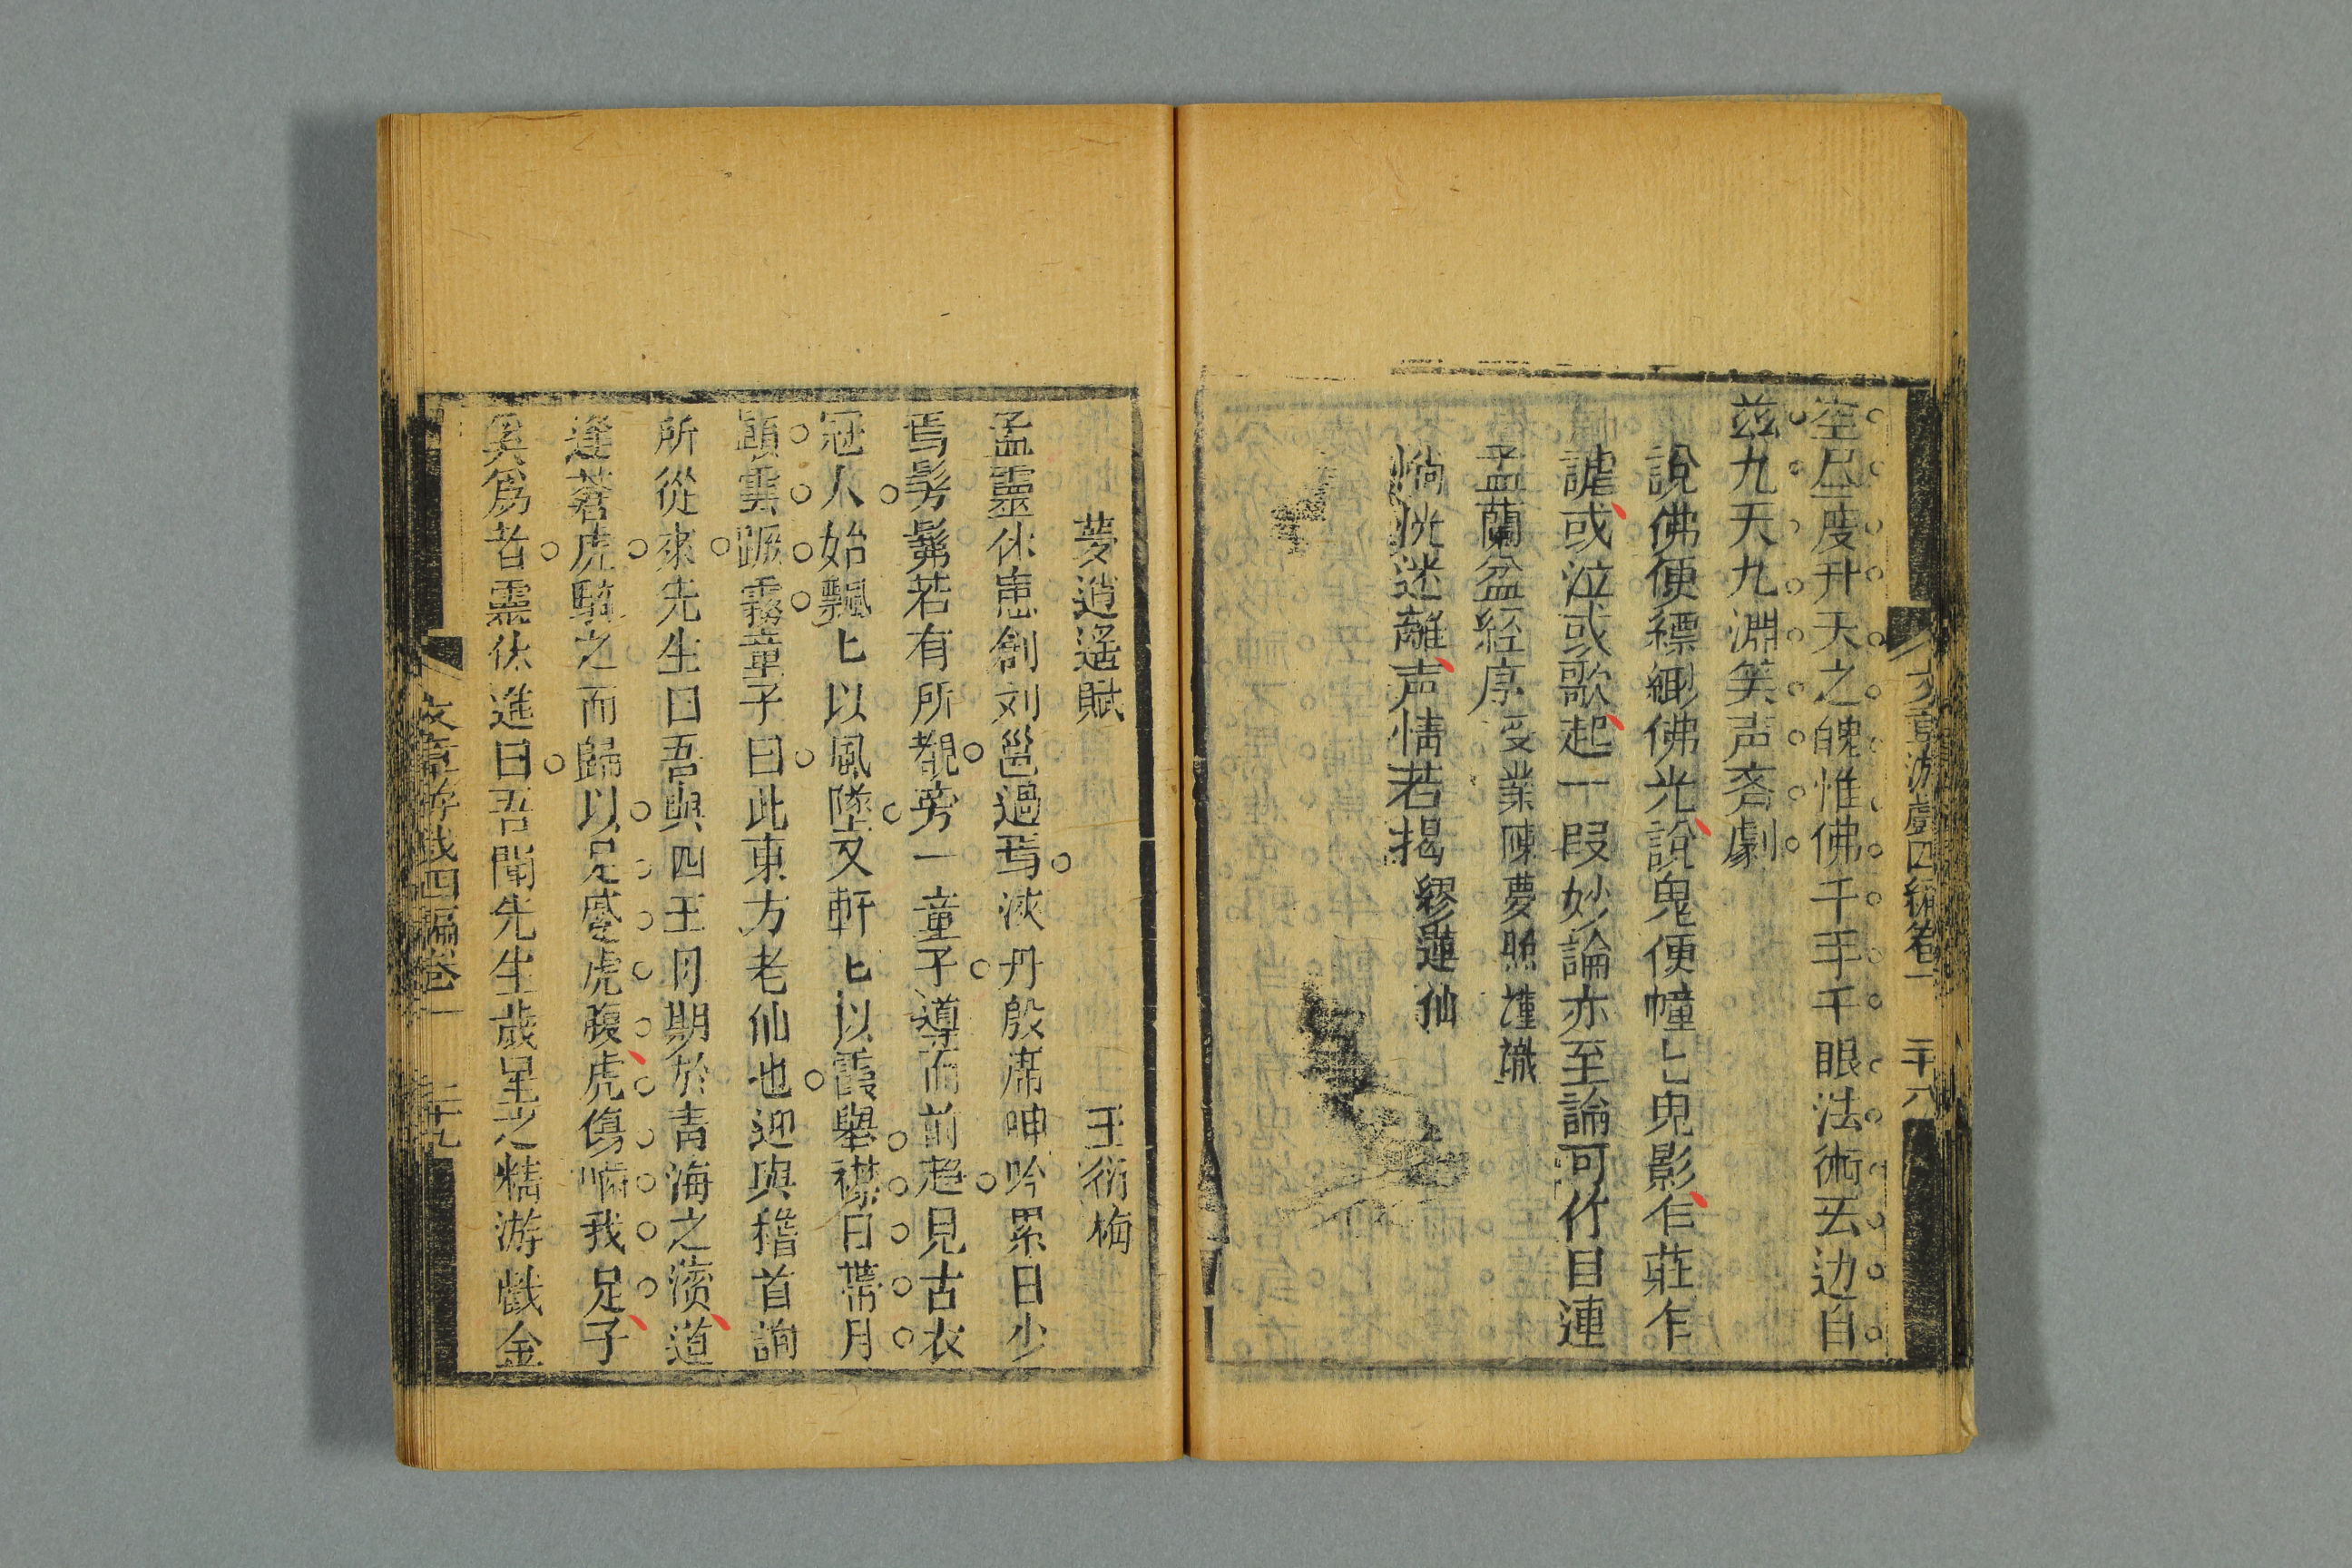 文章游戲四編卷一 二十八
空尽度升天之魄惟佛千手千眼法術无边自
茲九天九淵笑声吝劇
說佛便縹緲佛光說鬼便幢匕鬼影乍莊乍
謔或泣或歌起一段妙論亦至論可作目連
孟蘭盆経序 受業陳夢照謹識
惝恍迷離声情若揭 繆蓮仙
夢逍遥賦 王衍梅
孟靈休患創刘邕過焉浹丹殷席呻吟累日少
焉髣髴若有所覩旁一童子導而前趋見古衣
冠人始飄匕以風墜文軒匕以霞舉襟日帶月
頭雲蹶霧童子曰此東方老仙也迎與稽首詢
所從來先生曰吾與四王母期於青海之濱道
逢蒼虎騎之而歸以足蹙虎腹虎傷嚙我足子
奚爲者靈休進曰吾聞先生歲星之精游戲金
文章游戲四編卷一 二十九